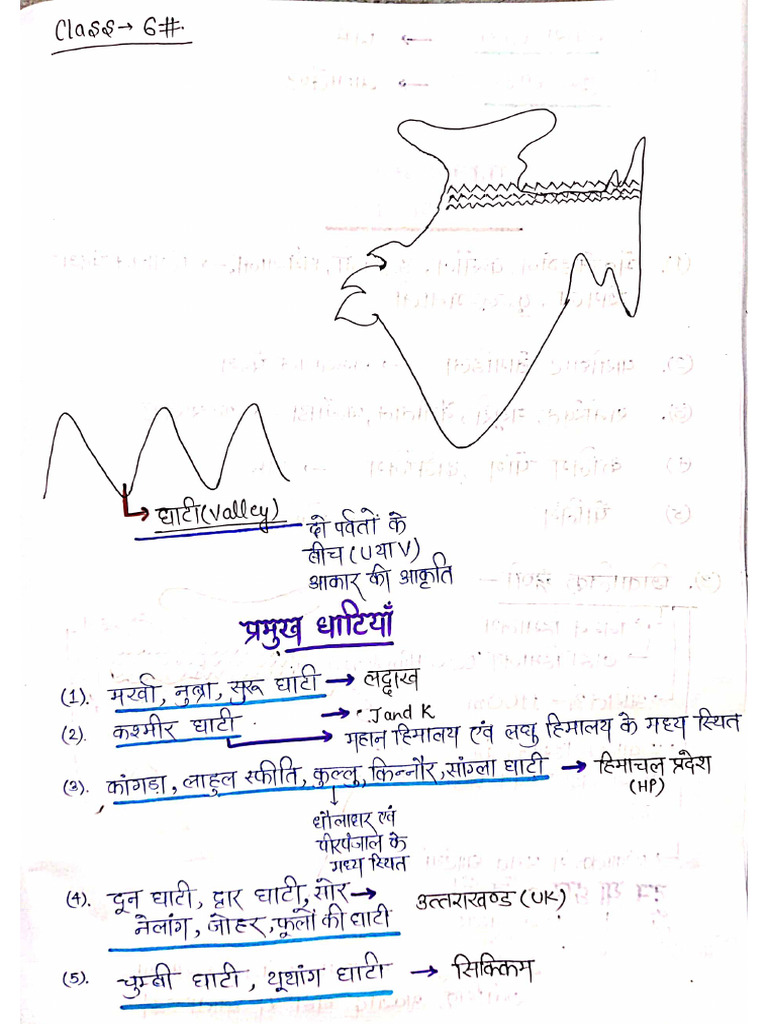 Class → 6#.
घाटी (Valley)
दो पर्वतों के
बीच (U या V)
आकार की आकृति
प्रमुख घाटियाँ
(1). मर्खा, नुब्रा, सुरू घाटी → लद्दाख
(2). कश्मीर घाटी → J and K
→ महान हिमालय एवं लघु हिमालय के मध्य स्थित
(3). कांगड़ा, लाहुल स्फीति, कुल्लु, किन्नौर, सांग्ला घाटी → हिमाचल प्रदेश
(HP)
धौलाधर एवं
पीरपंजाल के
मध्य स्थित
(4). दून घाटी, द्वार घाटी, सोर → उत्तराखण्ड (UK)
नेलांग, जोहर, फूलों की घाटी
(5). चुम्बी घाटी, थूथांग घाटी → सिक्किम